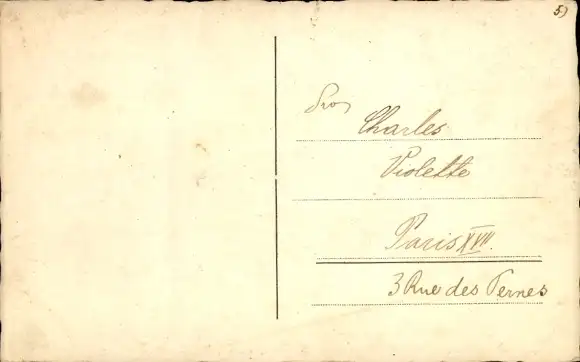 5)
Pro
Charles
Violette
Paris XVII.
3 Rue des Ternes